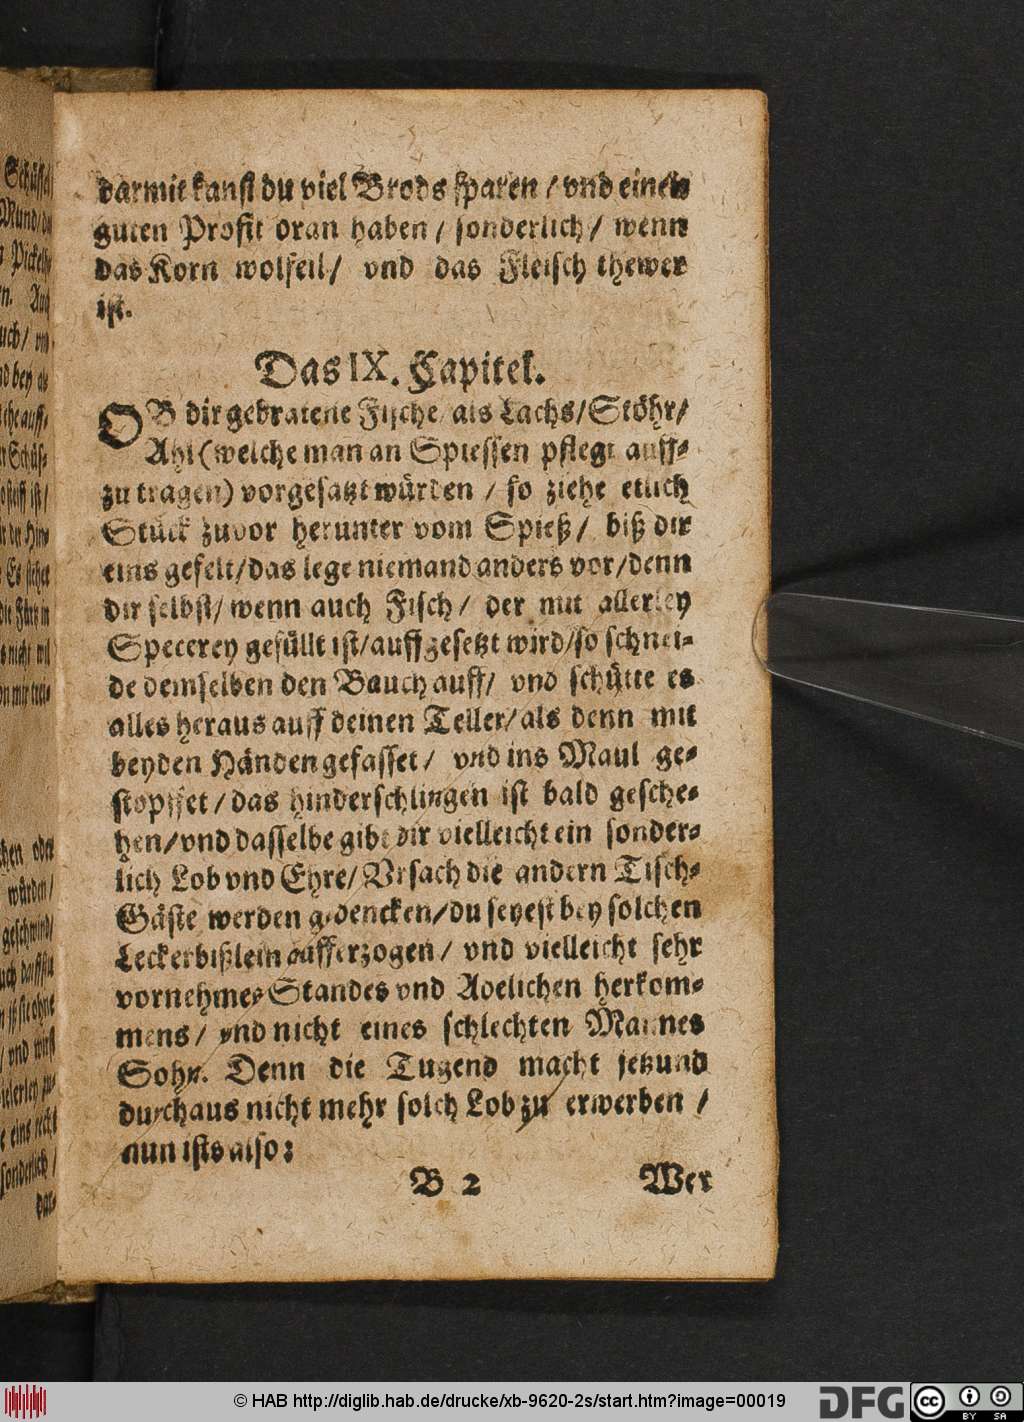 darmit kanst du viel Brods sparen / vnd einen
guten Profit dran haben / sonderlich / wenn
das Korn wolfeil / vnd das Fleisch thewer
ist.
Das IX. Capitel.
OB dir gebratene Fische / als Lachs / Stöhr /
Ahl (welche man an Spiessen pflegt auff-
zu tragen) vorgesatzt würden / so ziehe etlich
Stück zuvor herunter vom Spieß / biß dir
eins gefelt / das lege niemand anders vor / denn
dir selbst / wenn auch Fisch / der mit allerley
Specerey gefüllt ist / auffgesetzt wird / so schnei-
de demselben den Bauch auff / vnd schütte es
alles heraus auff deinen Teller / als denn mit
beyden Händen gefasset / vnd ins Maul ge-
stopffet / das hinderschlingen ist bald gesche-
hen / vnd dasselbe gibt dir vielleicht ein sonder-
lich Lob vnd Ehre / Vrsach die andern Tisch-
Gäste werden gedencken / du seyest bey solchen
Leckerbißlein aufferzogen / vnd vielleicht sehr
vornehmes Standes vnd Adelichen herkom-
mens / vnd nicht eines schlechten Mannes
Sohn. Denn die Tugend macht jetzund
durchaus nicht mehr solch Lob zu erwerben /
nun ists also:
B 2 Wer
© HAB http://diglib.hab.de/drucke/xb-9620-2s/start.htm?image=00019
DFG
cc BY SA